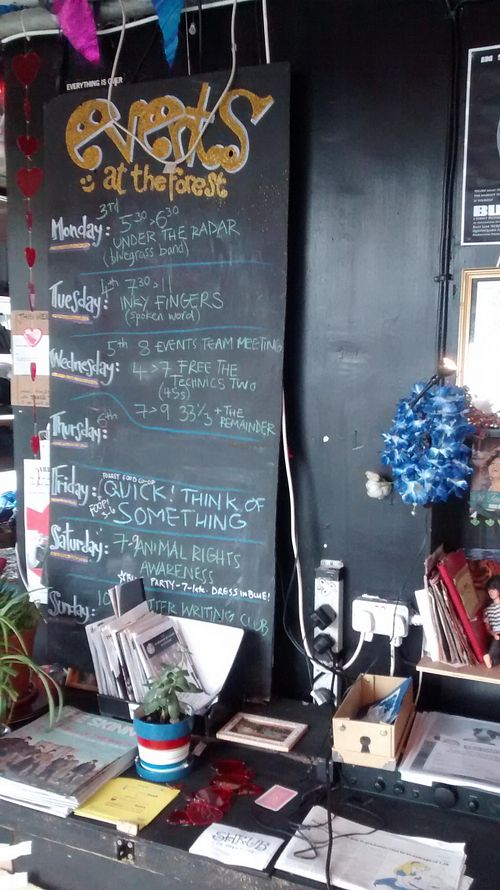 EVERYTHING IS OVER
events
at the forest
Monday: 3rd 5:30 > 6:30
UNDER THE RADAR
(bluegrass band)
Tuesday: 4th 7:30 > 11
INKY FINGERS
(spoken word)
Wednesday: 5th 8 EVENTS TEAM MEETING
4 > 7 FREE THE
TECHNICS TWO
(45s)
Thursday: 6th 7 > 9 33 1/3 + THE
REMAINDER
Friday: FOREST FOOD CO-OP
FOOP! QUICK! THINK OF
SOMETHING
Saturday: 7-9 ANIMAL RIGHTS
AWARENESS
PARTY - 7-late. DRESS IN BLUE!
Sunday: WRITING CLUB
SKINN
SHRUB
BU